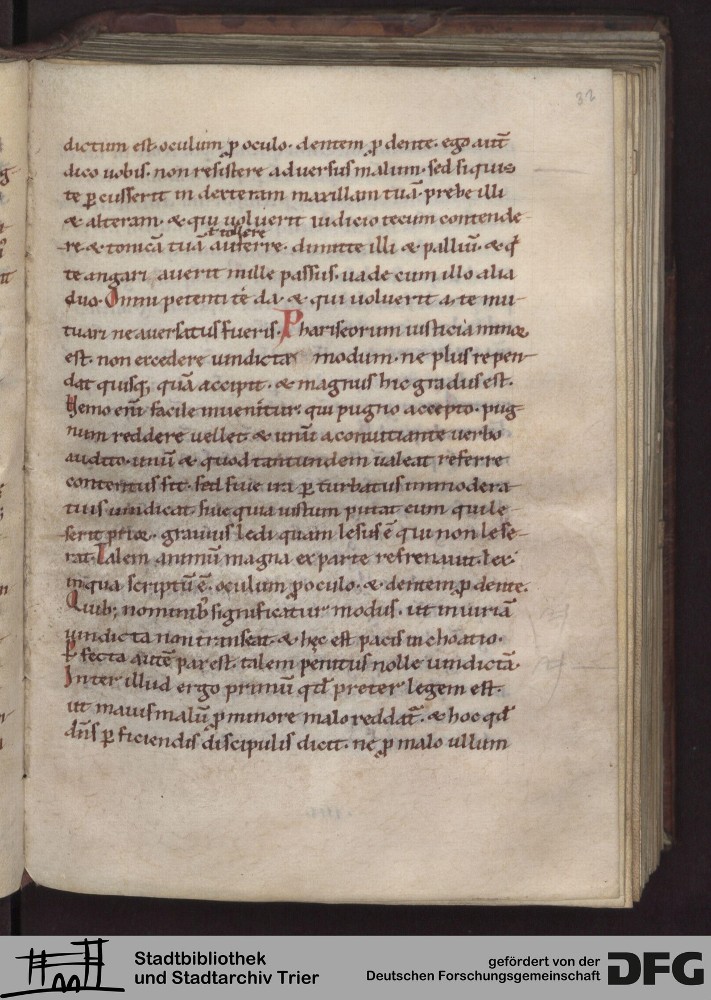 32
dictum est oculum ꝓ oculo· dentem ꝓ dente· ego autē
dico uobis· non resistere aduersus malum· sed siquis
te ꝑcusserit in dexteram maxillam tuā· prebe illi
& alteram· & qui uoluerit iudicio tecum contende-
ł tollere
re & tonicā tuā auferre· dimitte illi & palliū· & q̇
te angari auerit mille passus· uade cum illo alia
duo· Omni petenti te da· & qui uoluerit a te mu-
tuari ne auersatus fueris· Phariseorum iusticia minor
est· non excedere uindicta modum· ne plus repen-
dat quisq; quā accipit· & magnus hic gradus est·
Nemo enī facile inuenitur· qui pugno accepto· pug-
num reddere uellet & unū a conuitiante uerbo
audito· unū & quod tantundem ualeat referre
contentus sit· sed siue ira ꝑturbatus immodera-
tius uindicat· siue quia iustum putat eum qui le-
serit prior· grauius ledi quam lesus ē qui non lese-
rat· Talem animū magna ex parte refrenauit· lex·
inqua scriptū ē· oculum ꝓ oculo· & dentem ꝓ dente·
Quib; nominib; significatur modus· ut iniuriā
uindicta non transeat· & hęc est pacis inchoatio·
ꝑfecta autē pax est· talem penitus nolle uindictā·
Inter illud ergo primū qđ preter legem est·
ut maius malū ꝓ minore malo reddat̄· & hoc qđ
dn̄s ꝑficiendis discipulis dicit· ne ꝓ malo ullum
Stadtbibliothek
und Stadtarchiv Trier
gefördert von der
Deutschen Forschungsgemeinschaft
DFG